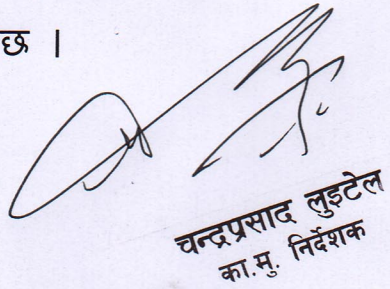 छ ।
चन्द्रप्रसाद लुइटेल
का.मु. निर्देशक